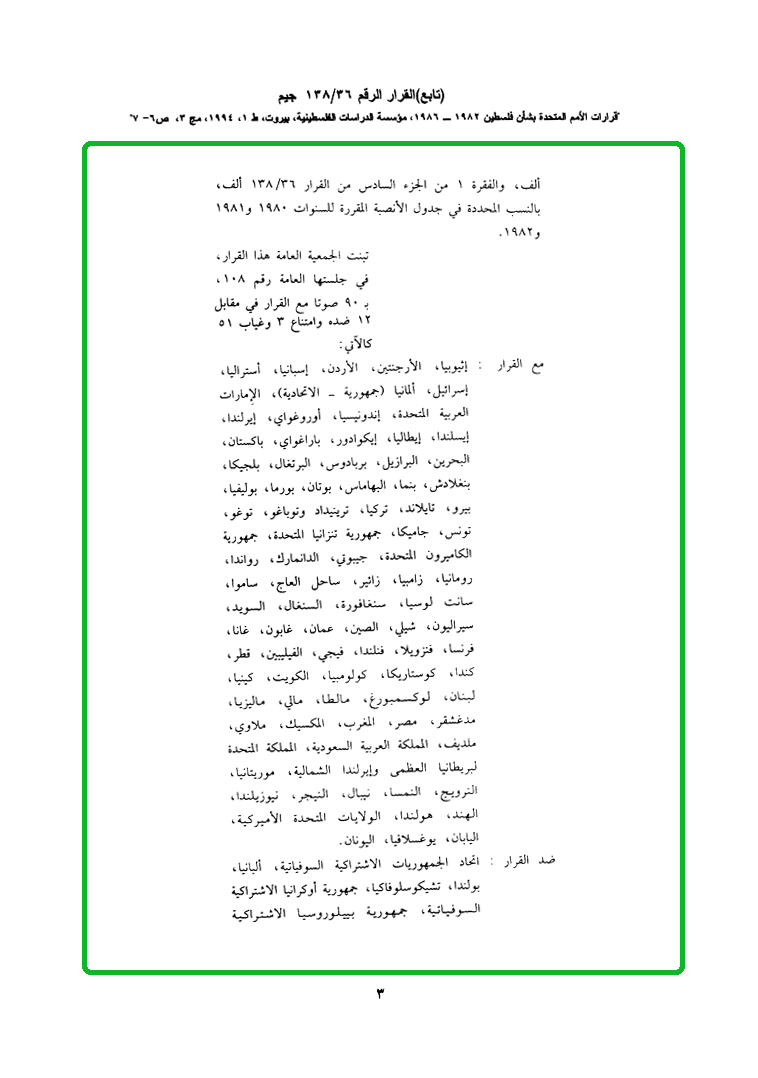 (تابع)القرار الرقم ١٣٨/٣٦ جيم
"قرارات الأمم المتحدة بشأن فلسطين ١٩٨٢ ــ ١٩٨٦، مؤسسة الدراسات الفلسطينية، بيروت، ط ١، ١٩٩٤، مج ٣، ص٦- ٧"
ألف، والفقرة ١ من الجزء السادس من القرار ١٣٨/٣٦ ألف،
بالنسب المحددة في جدول الأنصبة المقررة للسنوات ١٩٨٠ و١٩٨١
و١٩٨٢.
تبنت الجمعية العامة هذا القرار،
في جلستها العامة رقم ١٠٨،
بـ ٩٠ صوتا مع القرار في مقابل
١٢ ضده وامتناع ٣ وغياب ٥١
كالآتي:
مع القرار : إثيوبيا، الأرجنتين، الأردن، إسبانيا، أستراليا،
إسرائيل، ألمانيا (جمهورية ــ الاتحادية)، الإمارات
العربية المتحدة، إندونيسيا، أوروغواي، إيرلندا،
إيسلندا، إيطاليا، إيكوادور، باراغواي، باكستان،
البحرين، البرازيل، بربادوس، البرتغال، بلجيكا،
بنغلادش، بنما، البهاماس، بوتان، بورما، بوليفيا،
بيرو، تايلاند، تركيا، ترينيداد وتوباغو، توغو،
تونس، جاميكا، جمهورية تنزانيا المتحدة، جمهورية
الكاميرون المتحدة، جيبوتي، الدانمارك، رواندا،
رومانيا، زامبيا، زائير، ساحل العاج، ساموا،
سانت لوسيا، سنغافورة، السنغال، السويد،
سيراليون، شيلي، الصين، عمان، غابون، غانا،
فرنسا، فنزويلا، فنلندا، فيجي، الفيليبين، قطر،
كندا، كوستاريكا، كولومبيا، الكويت، كينيا،
لبنان، لوكسمبورغ، مالطا، مالي، ماليزيا،
مدغشقر، مصر، المغرب، المكسيك، ملاوي،
ملديف، المملكة العربية السعودية، المملكة المتحدة
لبريطانيا العظمى وإيرلندا الشمالية، موريتانيا،
النرويج، النمسا، نيبال، النيجر، نيوزيلندا،
الهند، هولندا، الولايات المتحدة الأميركية،
اليابان، يوغسلافيا، اليونان.
ضد القرار : اتحاد الجمهوريات الاشتراكية السوفياتية، ألبانيا،
بولندا، تشيكوسلوفاكيا، جمهورية أوكرانيا الاشتراكية
السوفياتية، جمهورية بييلوروسيا الاشتراكية
٣